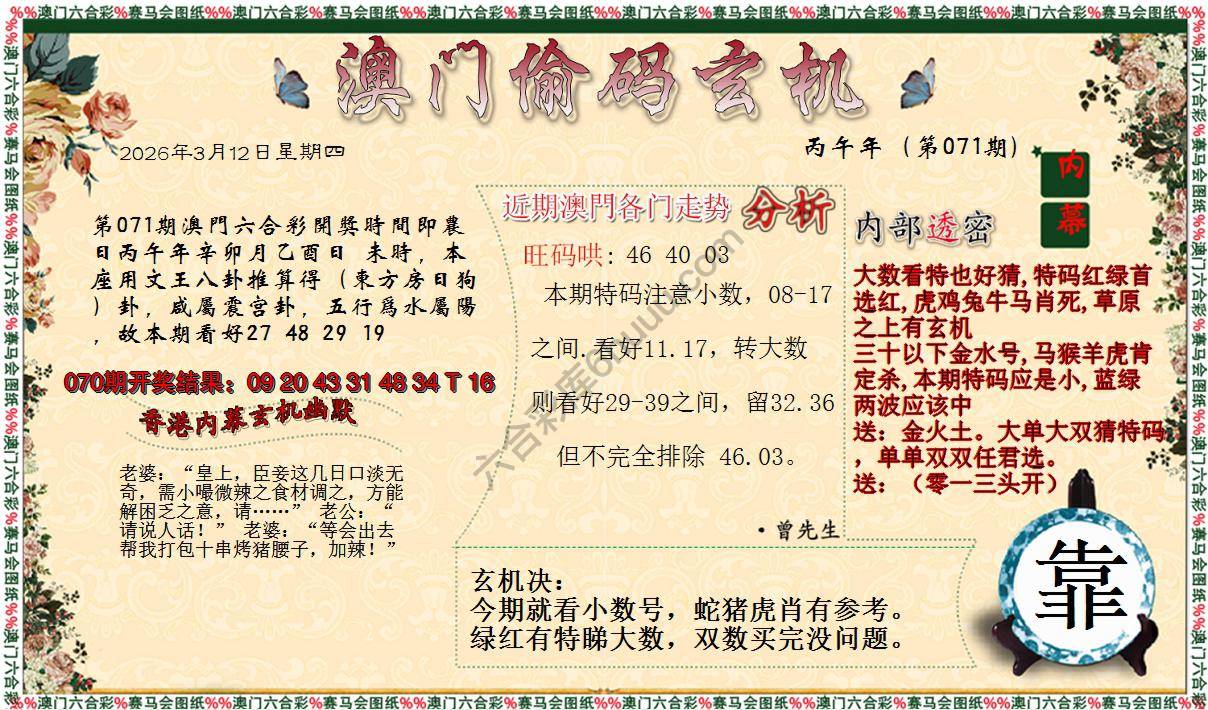 %%澳门六合彩%赛马会图纸%%澳门六合彩%赛马会图纸%%澳门六合彩%赛马会图纸%%澳门六合彩%赛马会图纸%%澳门六合彩%赛马会图纸%%澳门六合彩%赛马会图纸%%
澳门偷码玄机
2026年3月12日星期四
丙午年（第071期）
内幕
第071期澳門六合彩開獎時間即農
日丙午年辛卯月乙酉日 未時，本
座用文王八卦推算得（東方房日狗
）卦，咸屬震宫卦，五行爲水屬陽
，故本期看好27 48 29 19
070期开奖结果：09 20 43 31 48 34 T 16
香港内幕玄机幽默
老婆：“皇上，臣妾这几日口淡无
奇，需小嘬微辣之食材调之，方能
解困乏之意，请……” 老公：“
请说人话！” 老婆：“等会出去
帮我打包十串烤猪腰子，加辣！”
近期澳門各门走势 分析
旺码哄: 46 40 03
本期特码注意小数，08-17
之间.看好11.17，转大数
则看好29-39之间，留32.36
但不完全排除 46.03。
·曾先生
内部透密
大数看特也好猜,特码红绿首
选红,虎鸡兔牛马肖死,草原
之上有玄机
三十以下金水号,马猴羊虎肯
定杀,本期特码应是小,蓝绿
两波应该中
送：金火土。大单大双猜特码
，单单双双任君选。
送：（零一三头开）
玄机决：
今期就看小数号，蛇猪虎肖有参考。
绿红有特睇大数，双数买完没问题。
靠
%%澳门六合彩%赛马会图纸%%澳门六合彩%赛马会图纸%%澳门六合彩%赛马会图纸%%澳门六合彩%赛马会图纸%%澳门六合彩%赛马会图纸%%澳门六合彩%赛马会图纸%%